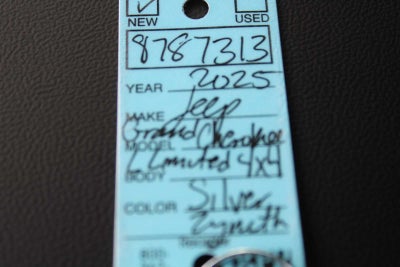 NEW USED
8787313
YEAR 2025
MAKE Jeep
MODEL Grand Cherokee
BODY L Limited 4x4
COLOR Silver
Zynith